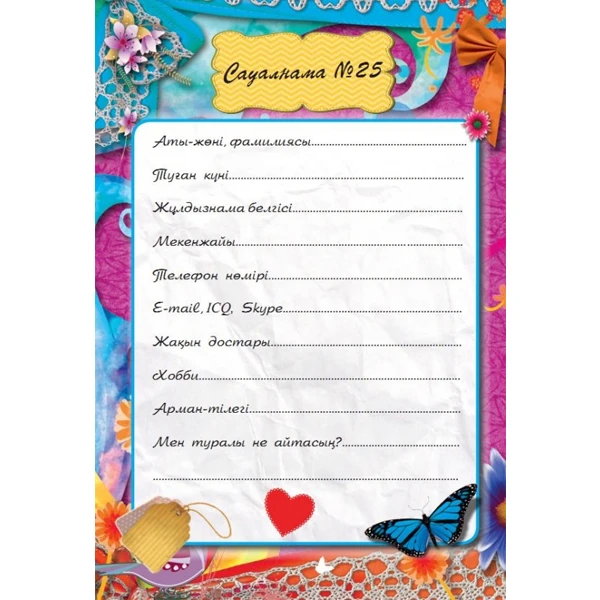 Сауалнама №25
Аты-жөні, фамилиясы
Туған күні
Жұлдызнама белгісі
Мекенжайы
Телефон нөмірі
E-mail, ICQ, Skype
Жақын достары
Хобби
Арман-тілегі
Мен туралы не айтасың?